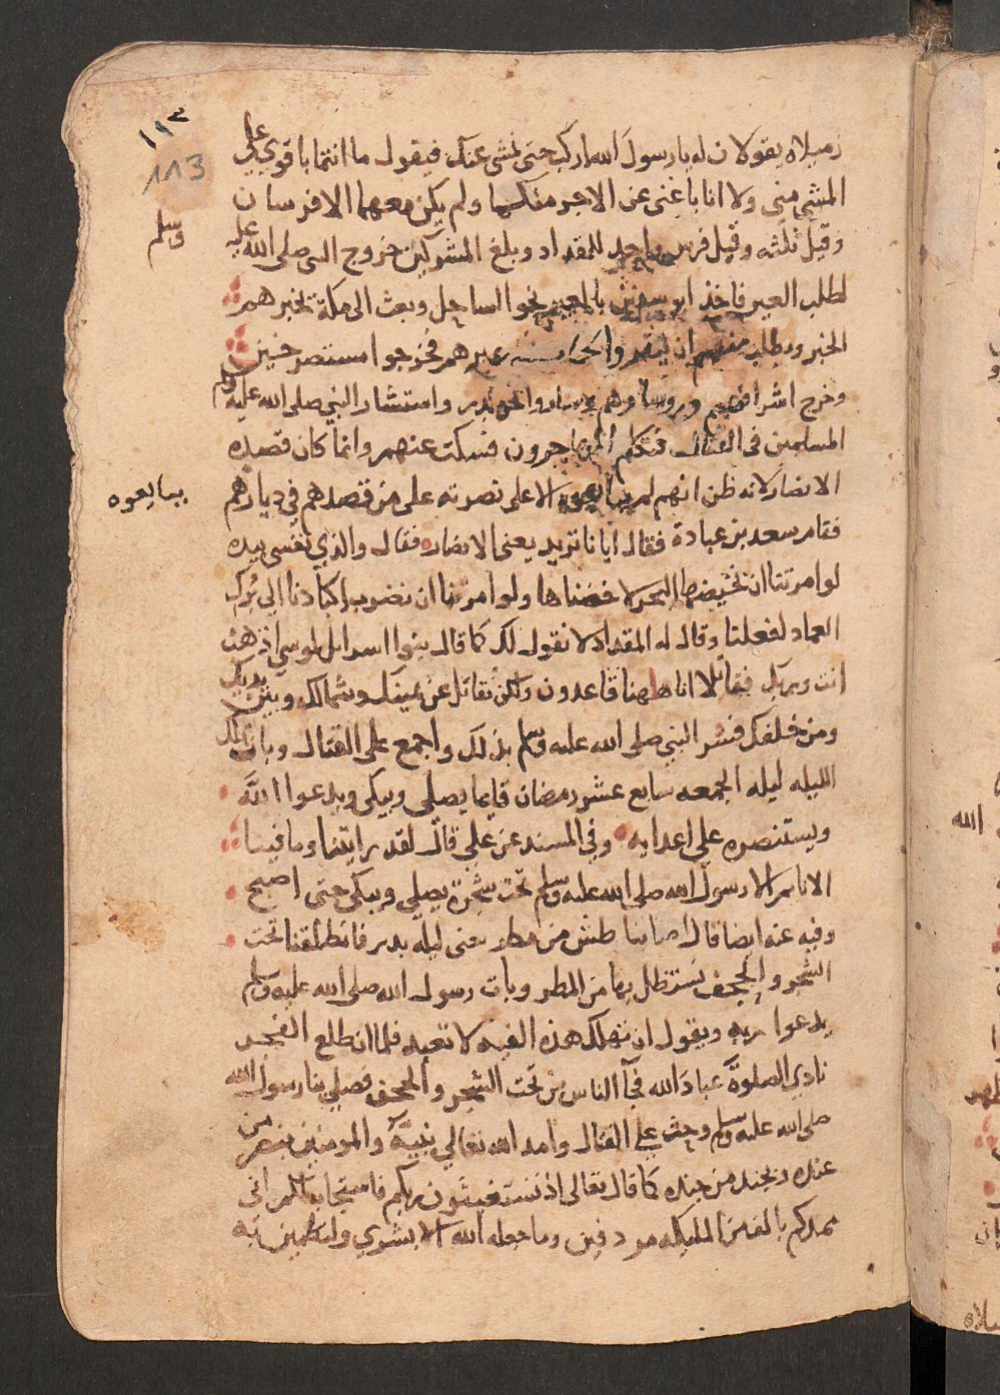 ١١٣
113
زميلاه يقولان له يا رسول الله اركب حتى نمشي عنك فيقول ما انتما باقوى على
المشي مني ولا انا باغنى عن الاجر منكما ولم يكن معهما الا فرسان
وقيل ثلثه وقيل فرس واحد للمقداد وبلغ المشركين خروج النبي صلى الله عليه
وسلم
لطلب العير فاخذ ابو سفين بالعير نحو الساحل وبعث الى مكة يخبرهم
الخبر ويطلب منهم ان ينفروا عيرهم فخرجوا مستصرخين
وخرج اشرافهم وروساوهم وساروا نحو بدر واستشار النبي صلى الله عليه وسلم
المسلمين في القتال فتكلم المهاجرون فسكت عنهم وانما كان قصده
الانصار لانه ظن انهم لم يبايعوه الا على نصرته على من قصدهم في ديارهم
يبايعوه
فقام سعد بن عبادة فقال ايانا تريد يعني الانصار فقال والذي نفسي بيده
لو امرتنا ان نخيضها البحر لاخضناها ولو امرتنا ان نضرب اكبادنا الى برك
العماد لفعلنا وقال له المقداد لا نقول لك كما قال بنوا اسرايل لموسى اذهب
انت وربك فقاتلا انا هاهنا قاعدون ولكن نقاتل عن يمينك وشمالك وبين يديك
ومن خلفك فسر النبي صلى الله عليه وسلم بذلك واجمع على القتال وبات تلك
الليله ليله الجمعه سابع عشر رمضان قايما يصلي ويبكي ويدعوا الله
ويستنصره على اعدايه وفي المسند عن علي قال لقد رايتنا وما فينا
الا نايم الا رسول الله صلى الله عليه وسلم تحت شجرة يصلي ويبكي حتى اصبح
وفيه عنه ايضا قال اصابنا طش من مطر يعني ليلة بدر فانطلقنا تحت
الشجر والحجف نستظل بها من المطر وبات رسول الله صلى الله عليه وسلم
يدعوا ربه ويقول ان تهلك هذه الفيه لا تعبد فلما ان طلع الفجر
نادى الصلوة عباد الله فجآ الناس من تحت الشجر والحجف فصلى بنا رسول الله
صلى الله عليه وسلم وحث على القتال وامد الله تعالى نبيه والمومنين بنصر من
عنده وبجند من جنده كما قال تعالى اذ تستغيثون ربكم فاستجاب لكم اني
ممدكم بالف من المليكه مردفين وما جعله الله الا بشرى ولتطمين به